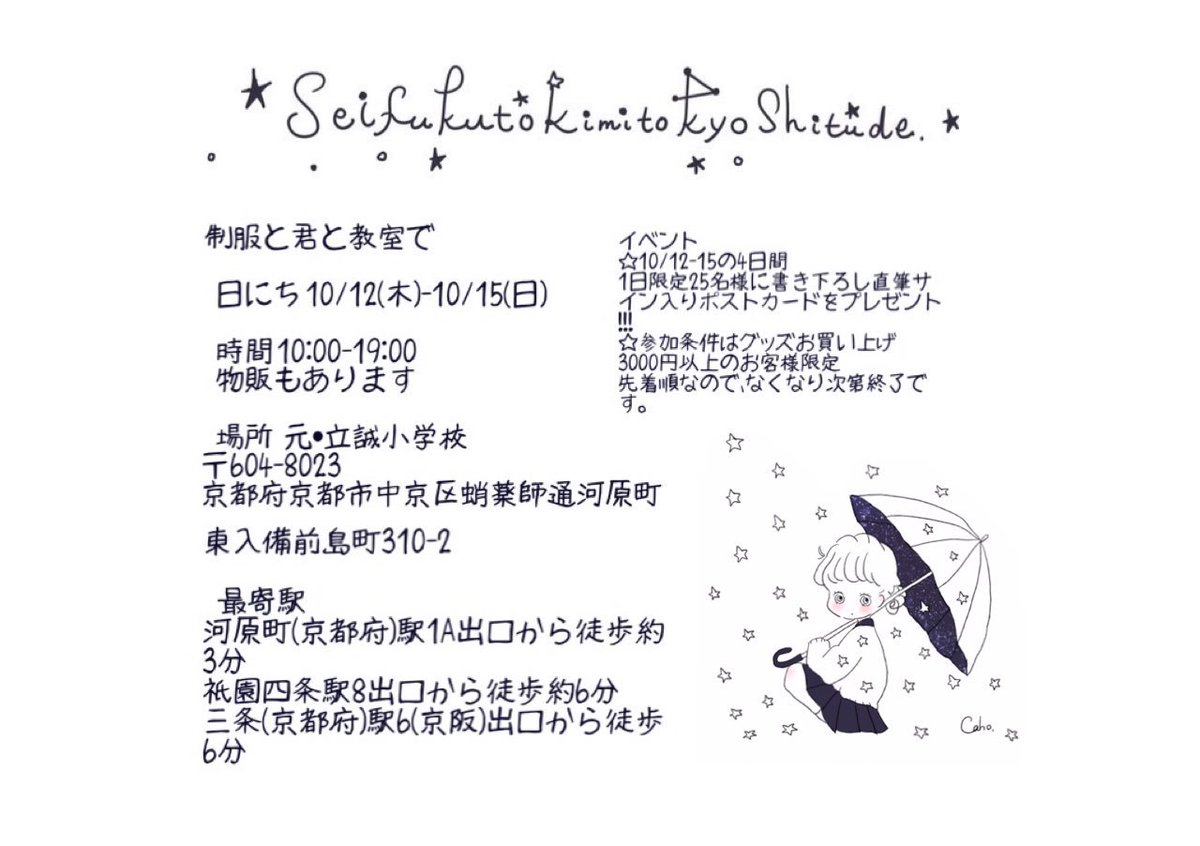 Seifukutokimitokyoshitude.
制服と君と教室で
日にち 10/12(木)-10/15(日)
時間10:00-19:00
物販もあります
場所 元•立誠小学校
〒604-8023
京都府京都市中京区蛸薬師通河原町
東入備前島町310-2
最寄駅
河原町(京都府)駅1A出口から徒歩約
3分
祇園四条駅8出口から徒歩約6分
三条(京都府)駅6(京阪)出口から徒歩
6分
イベント
☆10/12-15の4日間
1日限定25名様に書き下ろし直筆サ
イン入りポストカードをプレゼント
!!!
☆参加条件はグッズお買い上げ
3000円以上のお客様限定
先着順なので、なくなり次第終了で
す。
Caho.